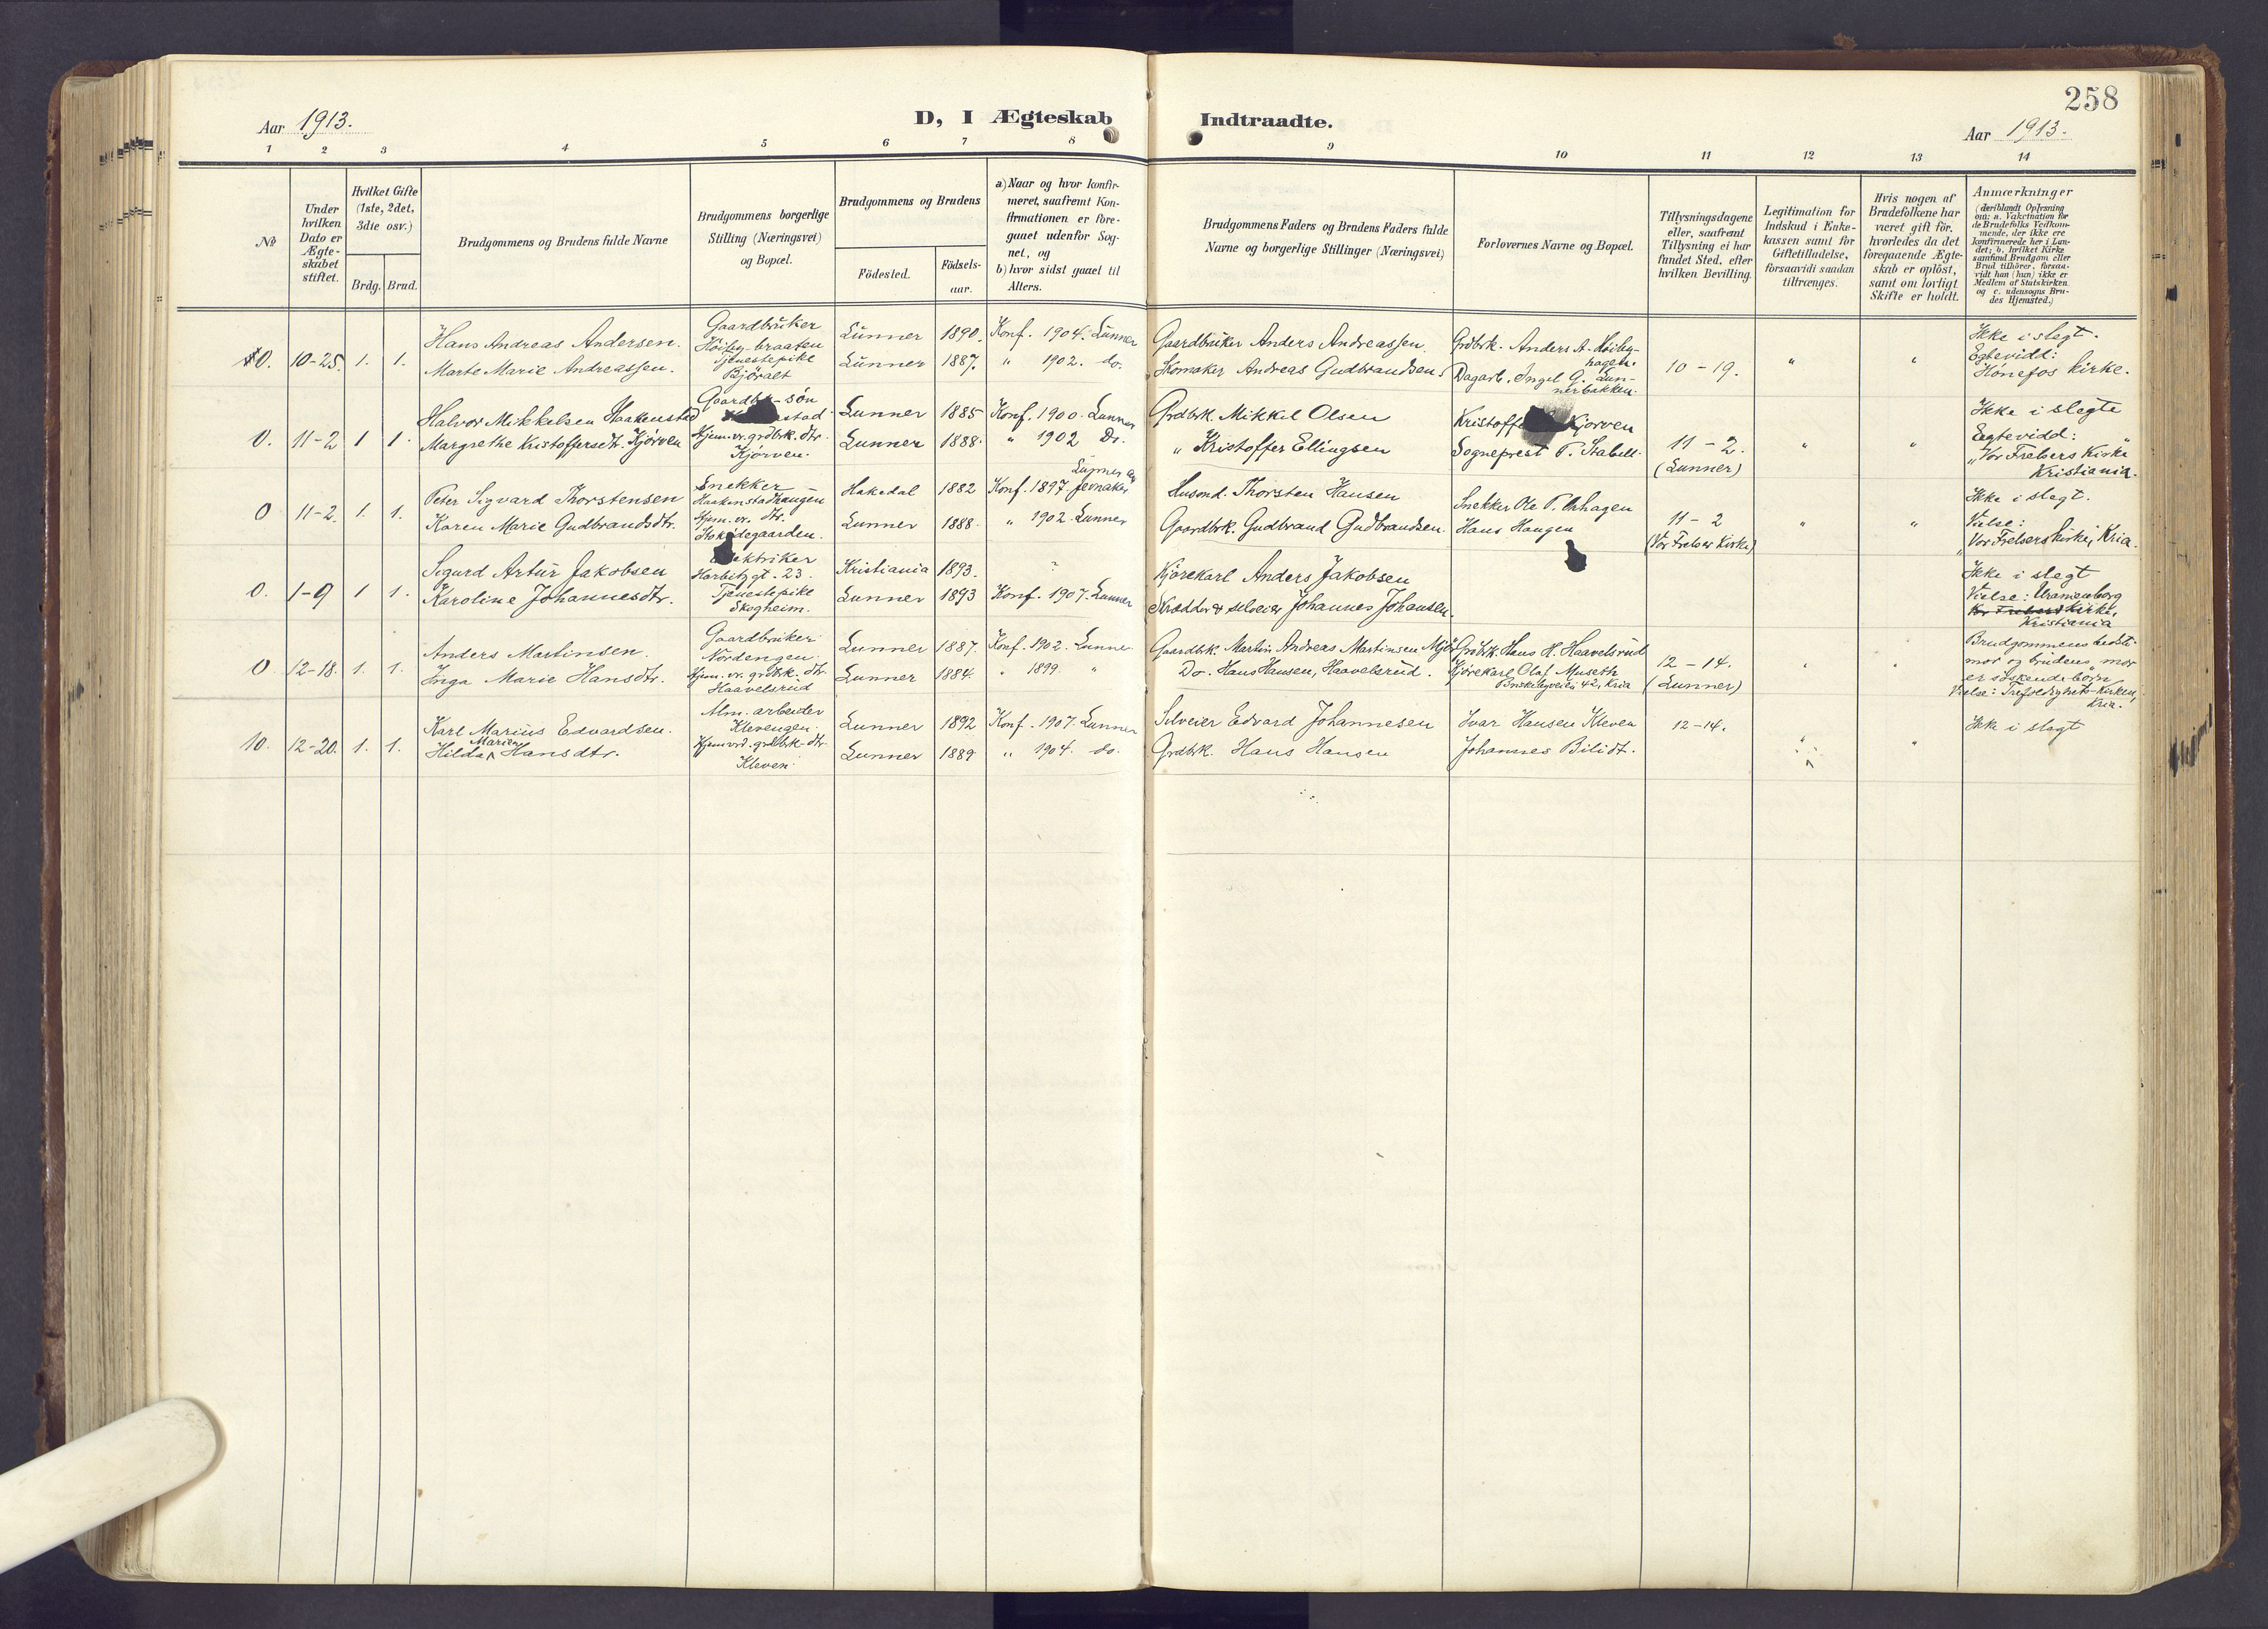 258
Aar 1913.
D, I Ægteskab Indtraadte.
Aar 1913.
1 2 3 4 5 6 7 8 9 10 11 12 13 14
No
Under hvilken Dato er Ægteskabet stiftet.
Hvilket Gifte (1ste, 2det, 3die osv.)
Brdg. Brud.
Brudgommens og Brudens fulde Navne
Brudgommens borgerlige Stilling (Næringsvei) og Bopæl.
Brudgommens og Brudens
Födested.
Födselsaar.
a) Naar og hvor konfirmeret, saafremt Konfirmationen er foregaaet udenfor Sognet, og
b) hvor sidst gaaet til Alters.
Brudgommens Faders og Brudens Faders fulde Navne og borgerlige Stillinger (Næringsvei)
Forlovernes Navne og Bopæl.
Tillysningsdagene eller, saafremt Tillysning ei har fundet Sted, efter hvilken Bevilling.
Legitimation for Indskud i Enkekassen samt for Giftetilladelse, forsaavidt saadan tiltrænges.
Hvis nogen af Brudefolkene har været gift för, hvorledes da det foregaaende Ægteskab er oplöst, samt om lovligt Skifte er holdt.
Anmærkninger
(deriblandt Oplysning om: a. Vakcination for de Brudefolks Vedkommende, der ikke ere konfirmerede her i Landet; b. hvilket Kirkesamfund Brudgom eller Brud tilhörer, forsaavidt han (hun) ikke er Medlem af Statskirken, og c. udensogns Brudes Hjemsted.)
0. 10-25. 1. 1.
Hans Andreas Andersen.
Marte Marie Andreassen.
Gaardbruker
Høiby-braaten
Tjenestepike
Björalt
Lunner 1890. Konf. 1904. Lunner
Lunner 1887. " 1902. do.
Gaardbruker Anders Andreassen.
Skomaker Andreas Gudbrandsen
Grdbrk. Anders A. Høibyhagen.
Dagarb. Ingel G. Lunnerbakken.
10-19. " "
Ikke i slegt.
Egtevidd:
Hönefos kirke.
0. 11-2 1 1.
Halvor Mikkelsen Haakenstad
Margrethe Kristoffersdt. Kjørven
søn
stad
Hjem.v. grdbrk. dtr.
Kjørven.
Lunner 1885 Konf. 1900. Lunner
Lunner 1888. " 1902 Do.
Grdbrk. Mikkel Olsen
" Kristoffer Ellingsen
Kjørven
Sogneprest P. Stabell.
11-2.
(Lunner)
" "
Ikke i slegte
Egtevidd: "
"Vor Frelsers Kirke
Kristiania.
0 11-2. 1. 1.
Peter Sigvard Thorstensen
Karen Marie Gudbrandsdtr.
Snekker
Haakenstadhaugen
Hjem. v. dtr.
Hakedal 1882 Konf. 1897 Jevnaker
Lunner 1888. " 1902. Lunner
Husmd. Thorsten Hansen
Gaardbrk. Gudbrand Gudbrandsen.
Snekker Ole P.
Hans Haugen
11-2
(Vor Frelser Kirke)
" "
Ikke i slegt.
Vielse:
Vor Frelsers kirke, Kria.
0. 1-9 1 1.
Sigurd Artur Jakobsen
Karoline Johannesdtr.
Harbitzgt. 23.
Tjenestepike
Skogheim.
Kristiania 1893. "
Lunner 1893 Konf. 1907. Lunner
Kjørekarl Anders Jakobsen
Skrædder & selveier Johannes Johansen.
Ikke i slegt
Vielse: Uranienborg
Vor Frelsers Kirke,
Kristiania
0 12-18. 1. 1.
Anders Martinsen.
Inga Marie Hansdtr.
Gaardbruker
Nordengen.
Hjem. v. grdbrk. dtr.
Haavelsrud
Lunner 1887. Konf. 1902. Lunner
Lunner 1884. " 1899. "
Gaardbk. Martin Andreas Martinsen
Do. Hans Hansen, Haavelsrud.
Grdbrk. Hans H. Haavelsrud
Kjörekarl Olaf Museth
42, Kria
12-14.
(Lunner)
" "
Brudgommens bedstemor og brudens mor er søskendebørn
Vielse: Trefoldighets-Kirken,
Kria.
10. 12-20. 1. 1.
Karl Marius Edvardsen.
Hilda Marie Hansdtr.
Alm. arbeider
Klevengen.
Hjemvd. grdbrk-dtr
Kleven.
Lunner 1892 Konf. 1907. Lunner
Lunner 1889 " 1904. do.
Selveier Edvard Johannesen
Grdbrk. Hans Hansen
Ivar Hansen Kleven
Johannes Bilidt.
12-14. " "
Ikke i slegt